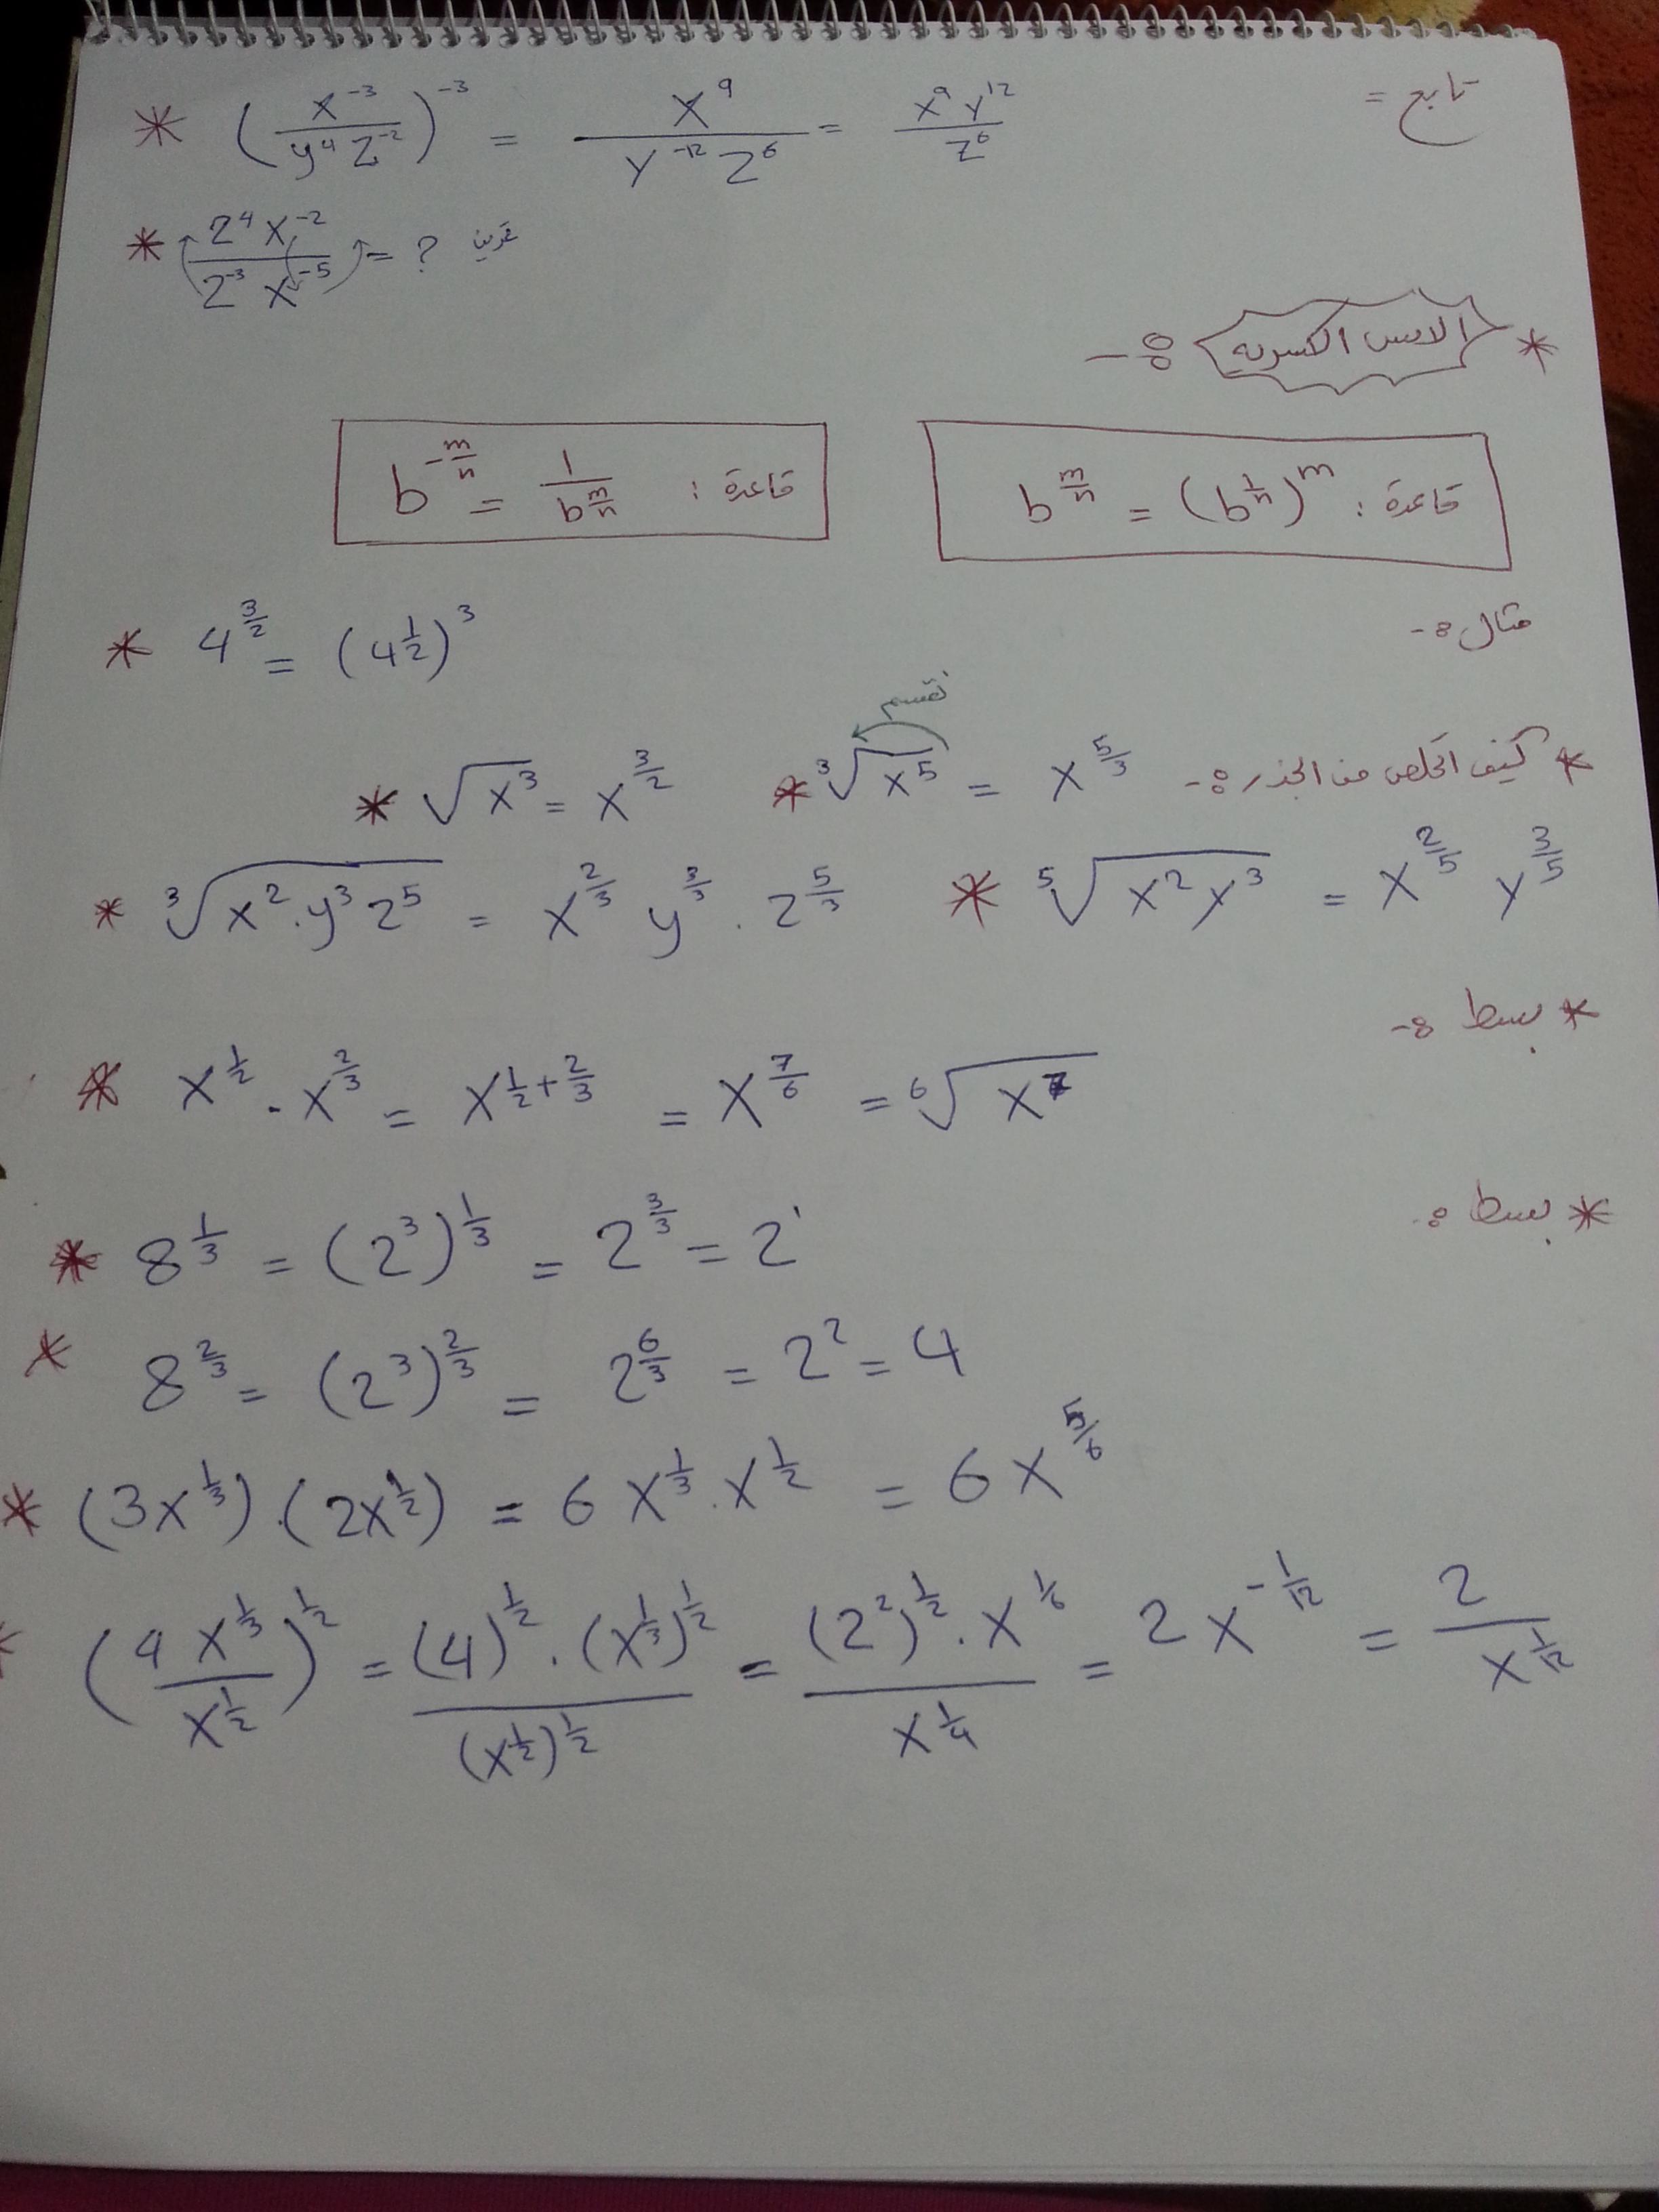 تابع =
* (x^-3 / y^4 z^-2)^-3 = x^9 / y^-12 z^6 = x^9 y^12 / z^6
* 2^4 x^-2 / 2^-3 x^-5 = ? تمرين
* الاسس الكسرية :-
قاعدة : b^(m/n) = (b^(1/n))^m
قاعدة : b^(-m/n) = 1 / b^(m/n)
مثال :-
* 4^(3/2) = (4^(1/2))^3
* كيف اتخلص من الجذر :-
نقسم
* ³√x^5 = x^(5/3) * √x^3 = x^(3/2)
* ³√x^2 . y^3 z^5 = x^(2/3) y^(3/3) . z^(5/3) * ⁵√x^2 y^3 = x^(2/5) y^(3/5)
* بسط :-
* x^(1/2) . x^(2/3) = x^(1/2 + 2/3) = x^(7/6) = ⁶√x^7
* بسط :-
* 8^(1/3) = (2^3)^(1/3) = 2^(3/3) = 2^1
* 8^(2/3) = (2^3)^(2/3) = 2^(6/3) = 2^2 = 4
* (3x^(1/3)) . (2x^(1/2)) = 6 x^(1/3) . x^(1/2) = 6 x^(5/6)
* (4 x^(1/3) / x^(1/2))^(1/2) = (4)^(1/2) . (x^(1/3))^(1/2) / (x^(1/2))^(1/2) = (2^2)^(1/2) . x^(1/6) / x^(1/4) = 2 x^(-1/12) = 2 / x^(1/12)